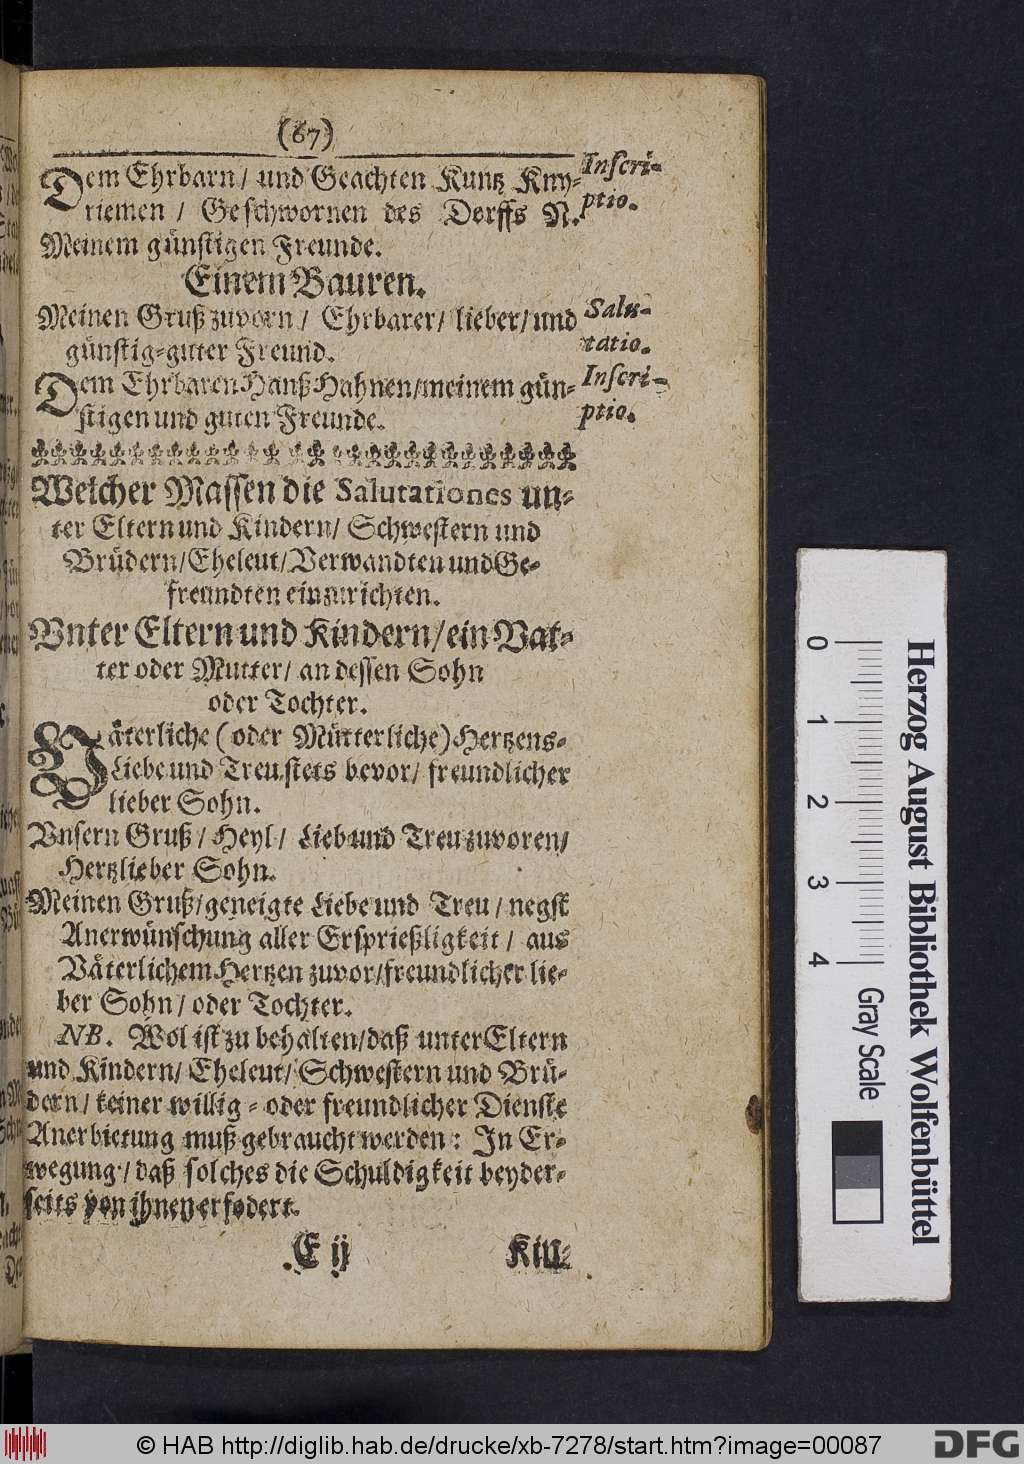 (67)
Dem Ehrbarn / und Geachten Kuntz Kny-
riemen / Geschwornen des Dorffs N.
Meinem günstigen Freunde.
Inscri-
ptio.
Einem Bauren.
Meinen Gruß zuvorn / Ehrbarer / lieber / und
günstig-guter Freund.
Salu-
tatio.
Dem Ehrbaren Hanß Hahnen / meinem gün-
stigen und guten Freunde.
Inscri-
ptio.
Welcher Massen die Salutationes un-
ter Eltern und Kindern / Schwestern und
Brüdern / Eheleut / Verwandten und Ge-
freundten einzurichten.
Vnter Eltern und Kindern / ein Vat-
ter oder Mutter / an dessen Sohn
oder Tochter.
Väterliche (oder Mütterliche) Hertzens-
Liebe und Treu stets bevor / freundlicher
lieber Sohn.
Vnsern Gruß / Heyl / Lieb und Treu zuvoren /
Hertzlieber Sohn.
Meinen Gruß / geneigte Liebe und Treu / negst
Anerwünschung aller Ersprießligkeit / aus
Väterlichem Hertzen zuvor / freundlicher lie-
ber Sohn / oder Tochter.
NB. Wol ist zu behalten / daß unter Eltern
und Kindern / Eheleut / Schwestern und Brü-
dern / keiner willig- oder freundlicher Dienste
Anerbietung muß gebraucht werden: In Er-
wegung / daß solches die Schuldigkeit beyder-
seits von ihnen erfodert.
E ij
Kin-
0 1 2 3 4
Gray Scale
Herzog August Bibliothek Wolfenbüttel
© HAB http://diglib.hab.de/drucke/xb-7278/start.htm?image=00087
DFG